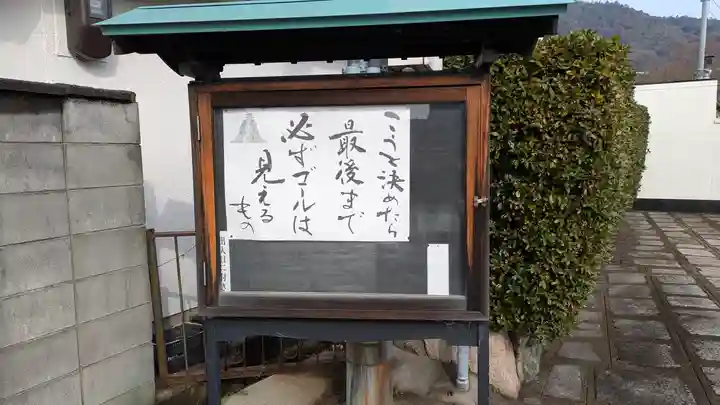 こうと決めたら
最後まで
必ずゴールは
見える
もの